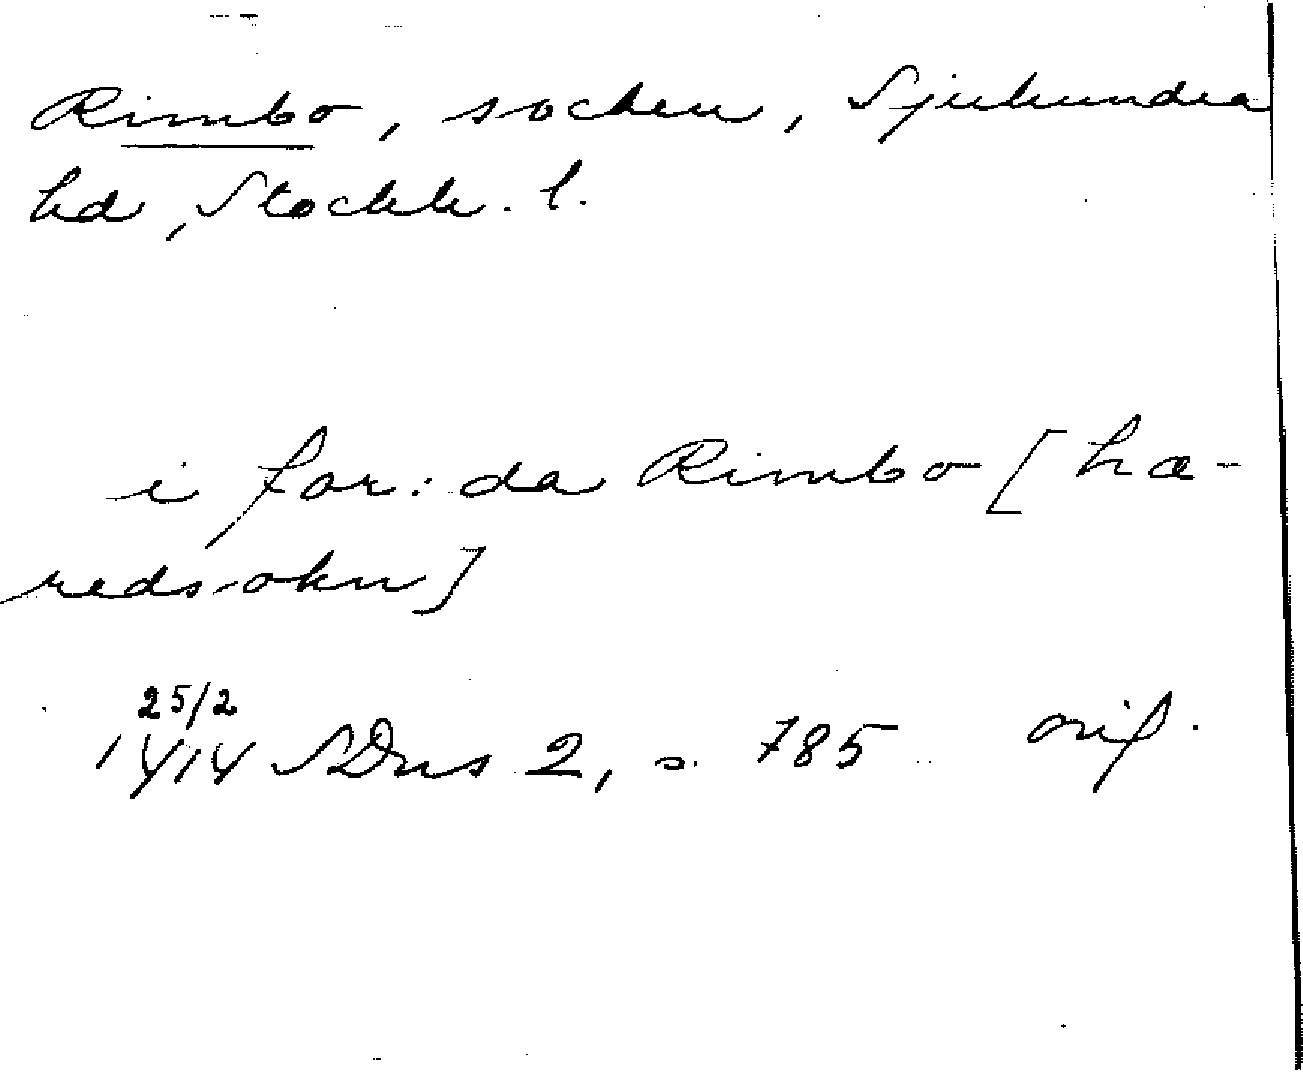 Rimbo, socken, Sjuhundra
hd, Stockh. l.
i for:da Rimbo [hæ-
redsokn]
25/2
1414 SDns 2, s. 785 orig.